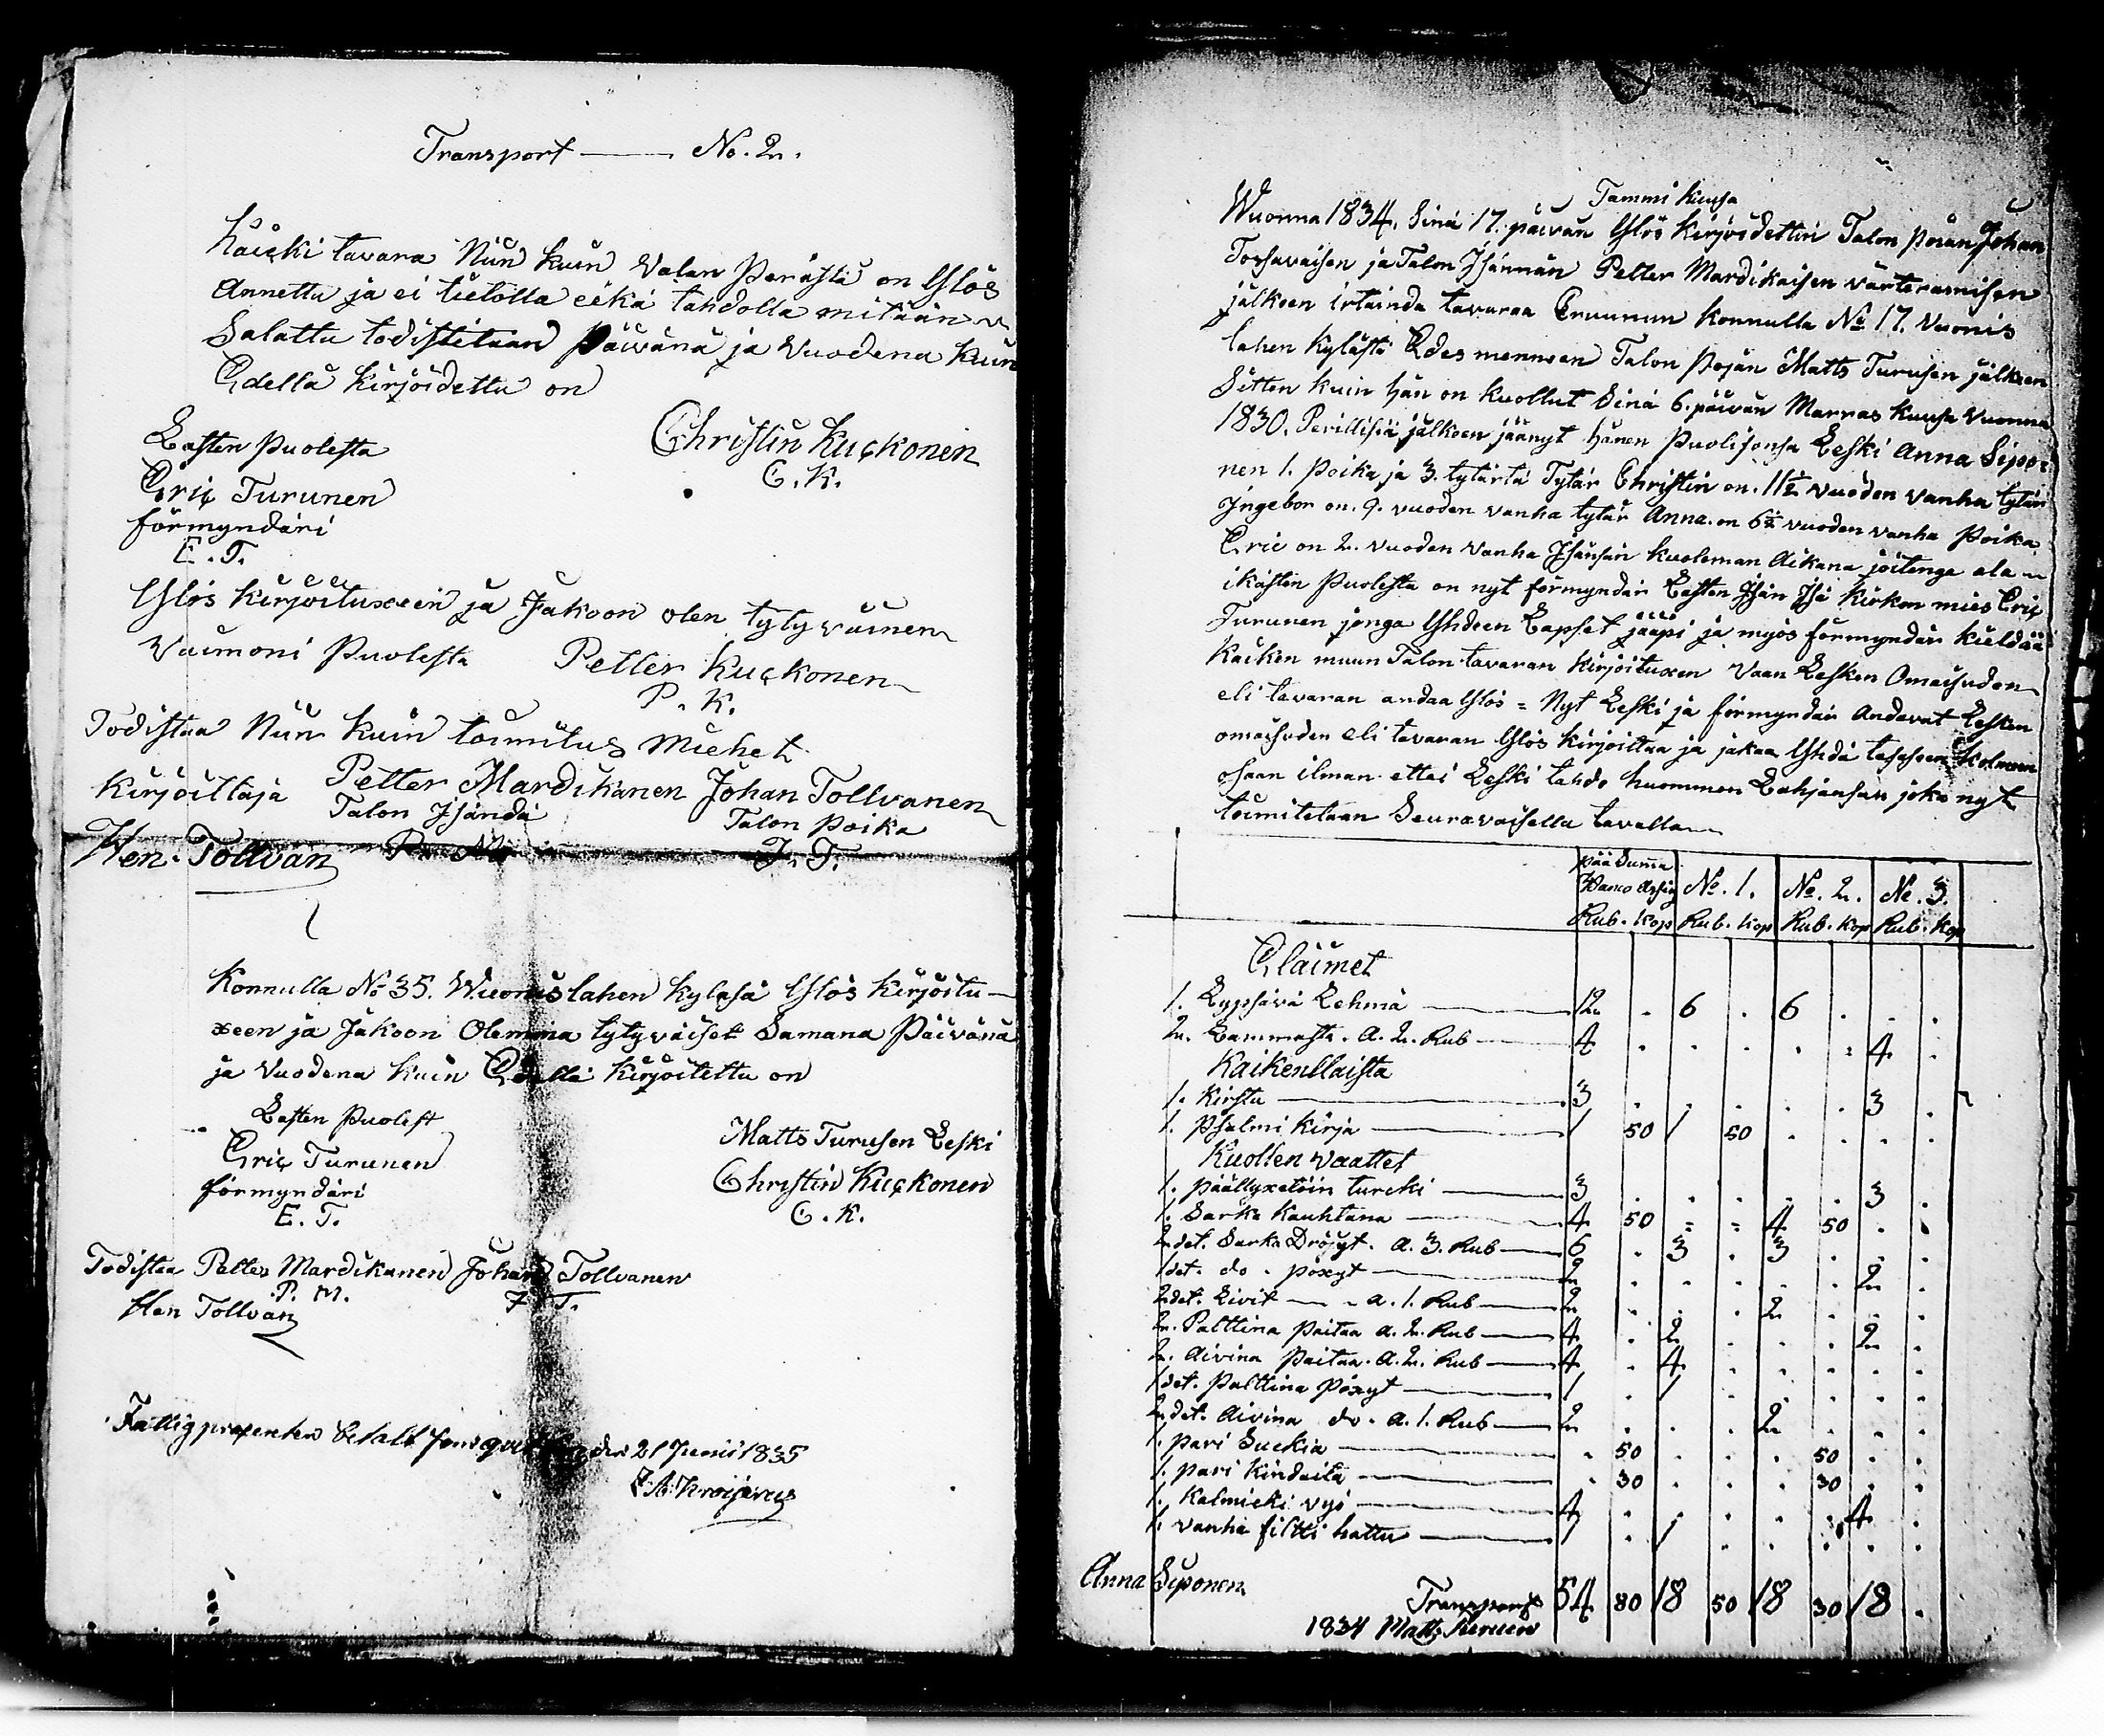 Transport — No. 2.
Kaicki tavara Niin kuin Valan Perästä on Ylös
Annettu ja ei tietolla eikä tahdolla mitään
Salattu todistetaan Päivänä ja Vuodena kuin
Edellä kirjoidettu on
Lasten Puolesta
Christin Kuckonen
Eric Turunen
C. K.
förmyndäri
E. T.
Ylös kirjoituxeen ja Jakoon olen tytyväinen
Vaimoni Puolesta Petter Kuckonen
P. K.
Todistaa Niin kuin toimitus Miehet
Kirjoittaja Petter Mardikanen Johan Tollvanen
Talon Isändä Talon Poika
Hen. Tollvan P. M. J. T.
Konnulla No 35. Wuonislahen kyläsä Ylös kirjoitu-
xeen ja Jakoon Olemma tytyväiset Samana Päivänä
ja Vuodena kuin Edellä kirjoitettu on
Lasten Puolest
Matts Turusen Leski
Eric Turunen
Christin Kuckonen
förmyndäri
E. T. C. K.
Todistaa Petter Mardikanen Johan Tollvanen
P. M. J. T.
Hen Tollvan
Fattigprocenten betalt den 21 Junii 1835
Tammi kuusa
Wuonna 1834. Sinä 17. päivän Ylös kirjoidettin Talon poian Johan
Tossavaisen ja Talon Isännän Petter Mardikaisen värteramisen
jälkeen irtainda tavaraa Cruunun konnulla No 17. Vuonis
lahen kylästä Edesmenneen Talon Pojan Matts Turusen jälkeen
Sitten kuin hän on kuollut Sinä 6. päivän Marras kuusa Vuonna
1830. Perillisiä jälkeen jäänyt hänen Puolisonsa Leski Anna Sipo-
nen 1. Poika ja 3. tytärtä Tytär Christin on. 11½ vuoden vanha tytär
Ingebor on. 9. vuoden vanha tytär Anna. on 6½ vuoden vanha Poika
Eric on 2. vuoden vanha Isänsän kuoleman Aikana joitenga ala
ikästen Puolesta on nyt förmyndär Lasten Isän Isä kirkon mies Eric
Turunen jonga Yhdeen Lapset jääpi ja myös förmyndär kieldää
Kaiken muun Talon tavaran kirjoituxen Vaan Lesken Omaisuden
eli tavaran andaa Ylös = Nyt Leski ja förmyndär Andavat Lesken
omaisuden eli tavaran Ylös kirjoittaa ja jakaa Yhdä tasaseen Kolmeen
osaan ilman ettei Leski tahdo huommen Lahjansan joka nyt
toimitetaan Seuravaisella tavalla
pää Summa
Banco Assig No. 1. No. 2. No. 3.
Rub. Kop Rub. Kop Rub. Kop Rub. Kop
Eläimet
1. Lypsävä Lehmä — 12 . 6 . 6 . . .
2. Lammasta. a. 2. Rub — 4 . . . . . 4 .
Kaikenllaista
1. Kirstu — 3 . . . . . 3 .
1. Psalmi Kirja — 1 50 1 50 . . . .
Kuollen Vaattet
1. Päällyxetöin turcki — 3 . . . . . 3 .
1. Sarka Kauhtana — 4 50 = = 4 50 . .
2 det. Sarka Dröijyt. a. 3. Rub — 6 . 3 . 3 . . .
1 det. do. Pöxyt — 2 . . . . . 2 .
2 det. Livit — a. 1. Rub — 2 . . . 2 . . .
2. Palttina Paitaa a. 2. Rub — 4 . 2 . . . 2 .
2. Aivina Paitaa. a. 2. Rub — 4 . 4 . . . . .
1 det. Palttina Pöxyt — 1 . 1 . . . . .
2 det. Aivina do. a. 1. Rub — 2 . . . 2 . . .
1. Pari Suckia — . 50 . . . 50 . .
1. Pari Kindaita — . 30 . . . 30 . .
1. Kalmicki vyö — 4 . . . . . 4 .
1. Vanha filtti hattu — 1 . 1 . . . . .
Anna Siponen Transport 54 80 18 50 18 30 18 .
1834 Matts Turunen